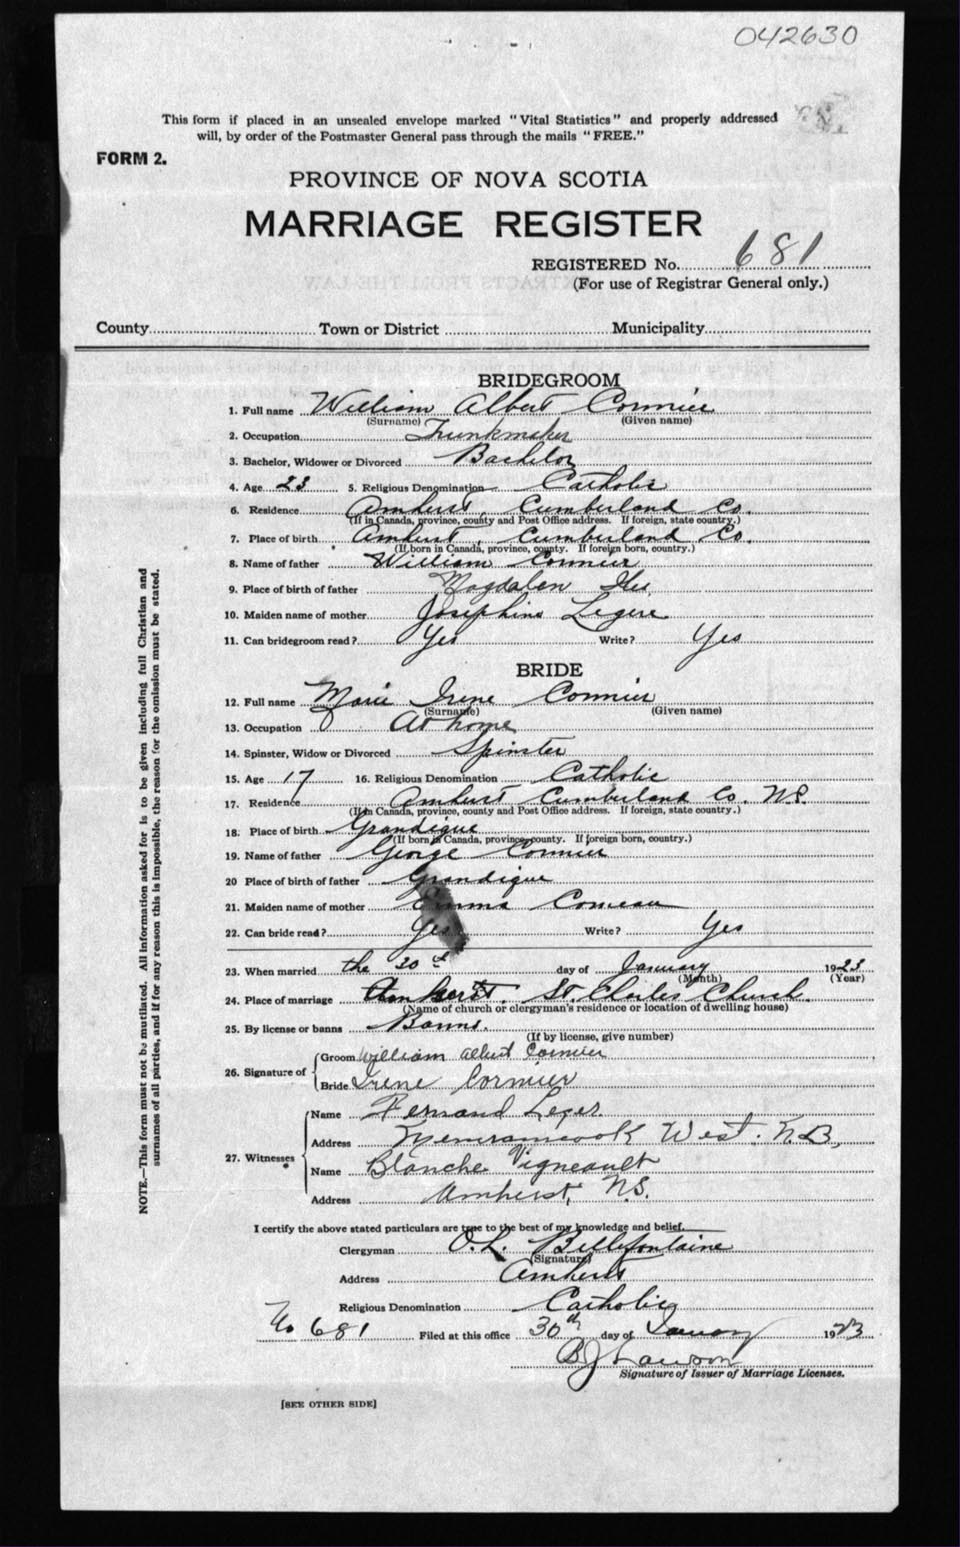 042630
This form if placed in an unsealed envelope marked "Vital Statistics" and properly addressed
will, by order of the Postmaster General pass through the mails "FREE."
FORM 2.
PROVINCE OF NOVA SCOTIA
MARRIAGE REGISTER
REGISTERED No. 681
(For use of Registrar General only.)
County Town or District Municipality
BRIDEGROOM
1. Full name William Albert Cormier
(Surname) (Given name)
2. Occupation Trunkmaker
3. Bachelor, Widower or Divorced Bachelor
4. Age 23 5. Religious Denomination Catholic
6. Residence Amherst, Cumberland Co.
(If in Canada, province, county and Post Office address. If foreign, state country.)
7. Place of birth Amherst, Cumberland Co.
(If born in Canada, province, county. If foreign born, country.)
8. Name of father William Cormier
9. Place of birth of father Magdalen Ils
10. Maiden name of mother Josephine Legere
11. Can bridegroom read? Yes Write? Yes
BRIDE
12. Full name Marie Irene Cormier
(Surname) (Given name)
13. Occupation At home
14. Spinster, Widow or Divorced Spinster
15. Age 17 16. Religious Denomination Catholic
17. Residence Amherst Cumberland Co. N.S.
(If in Canada, province, county and Post Office address. If foreign, state country.)
18. Place of birth Grandigue
(If born in Canada, province, county. If foreign born, country.)
19. Name of father George Cormier
20 Place of birth of father Grandigue
21. Maiden name of mother Emma Comeau
22. Can bride read? Yes Write? Yes
23. When married the 30th day of January 1923
(Month) (Year)
24. Place of marriage Amherst, St. Charles Church.
(Name of church or clergyman's residence or location of dwelling house)
25. By license or banns Banns.
(If by license, give number)
26. Signature of Groom William Albert Cormier
Bride Irene Cormier
27. Witnesses Name Fernand Leger
Address Memramcook West. N.B.
Name Blanche Vigneault
Address Amherst, N.S.
I certify the above stated particulars are true to the best of my knowledge and belief.
Clergyman O. L. Bellefontaine
(Signature)
Address Amherst
Religious Denomination Catholic
No 681 Filed at this office 30th day of January 1923
B J Lawson
Signature of Issuer of Marriage Licenses.
[SEE OTHER SIDE]
NOTE.—This form must not be mutilated. All information asked for is to be given including full Christian and
surnames of all parties, and if for any reason this is impossible, the reason for the omission must be stated.